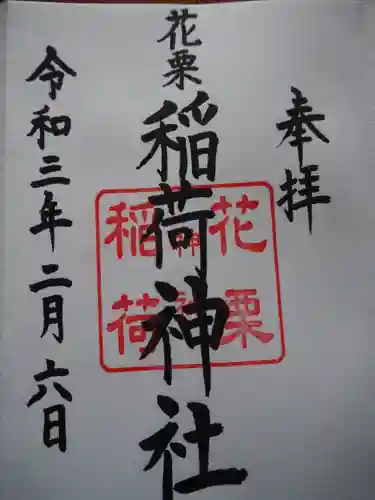 奉拝
花栗
稲荷神社
令和三年二月六日
花栗
神社
稲荷